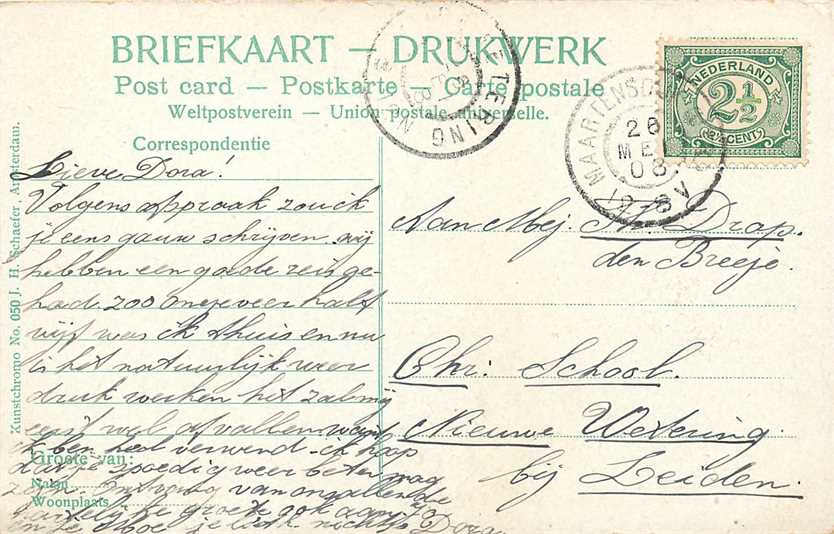 BRIEFKAART — DRUKWERK
Post card — Postkarte — Carte postale
Weltpostverein — Union postale universelle.
NEDERLAND
2½
(2½ CENT)
MAARTENSDIJK
26
ME
08
Correspondentie
Lieve Dora!
Volgens afspraak zou ik
je eens gauw schrijven. wij
hebben een goede reis ge-
had zoo ongeveer half
vijf was ik thuis en nu
is het natuurlijk weer
druk werken het zal mij
eerst wel afvallen want
ik ben heel verwend ik hoop
dat je spoedig weer beter mag
zijn. Ontvang van ons allen de
hartelijke groete ook aan
je Moe
Dora
Groete van:
Naam
Woonplaats
Aan Mej. Drap.
den Breeje.
Chr. School.
Nieuwe Wetering
bij Leiden.
Kunstchromo No. 050 J. H. Schaefer, Amsterdam.